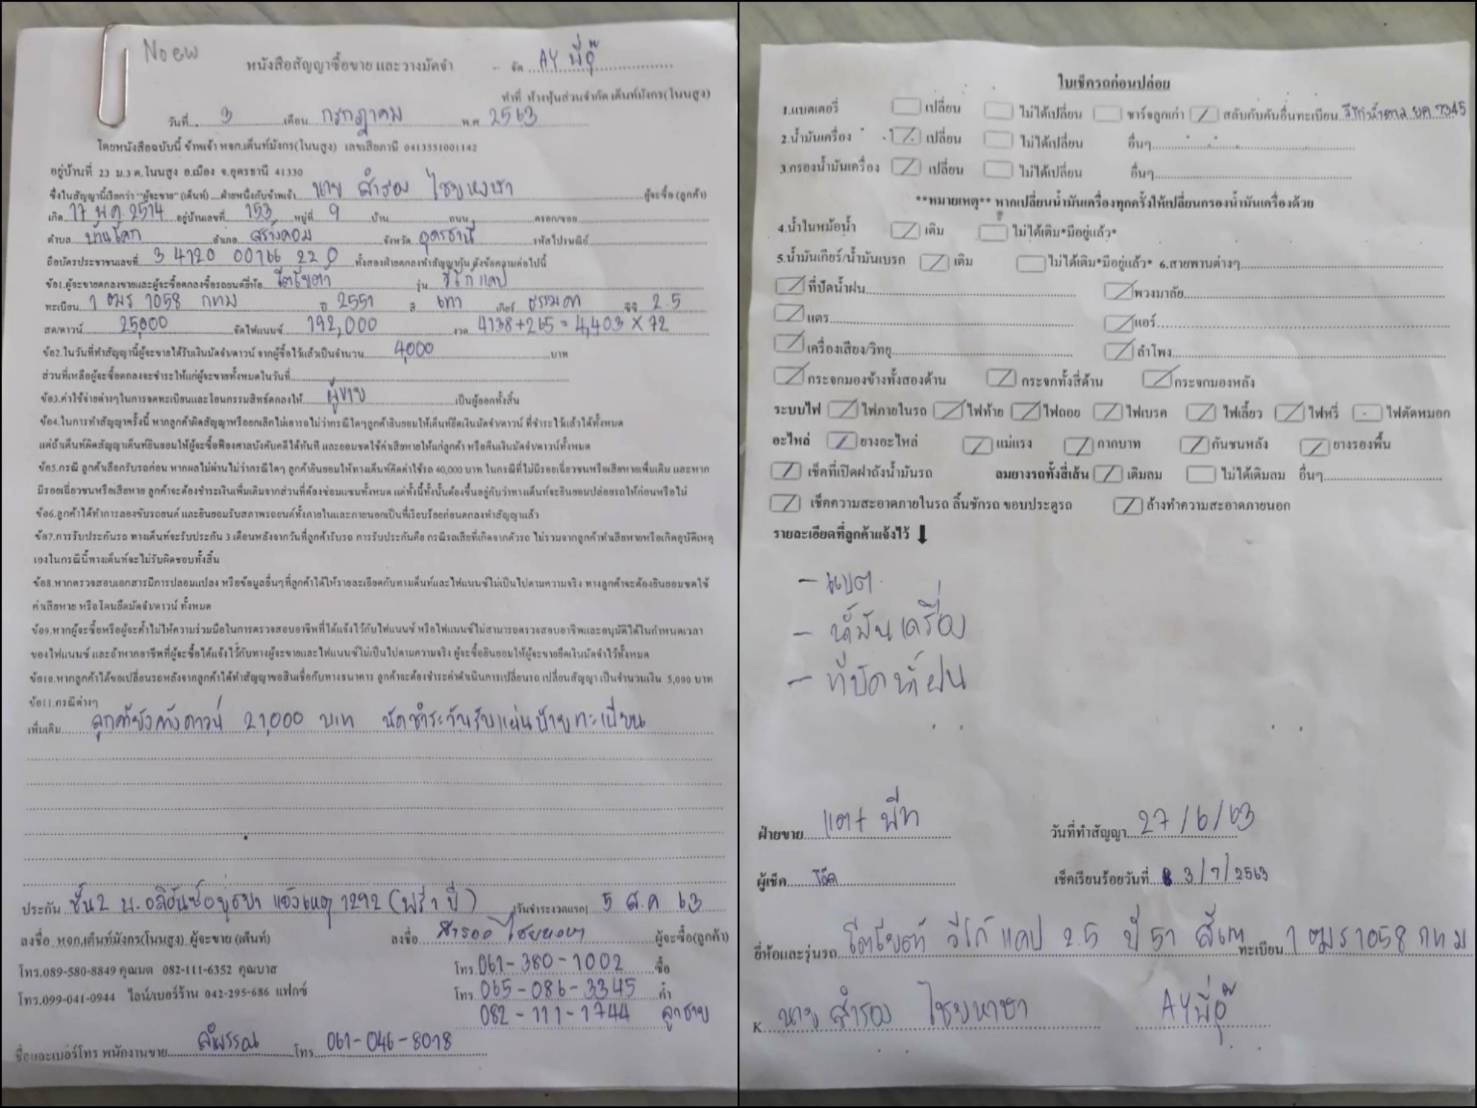 Noew
หนังสือสัญญาซื้อขาย และวางมัดจำ - จัด AY พี่อุ๊
ทำที่ ห้างหุ้นส่วนจำกัดเต็นท์มังกร(โนนสูง)
วันที่ 3 เดือน กรกฎาคม พ.ศ 2563
โดยหนังสือฉบับนี้ ข้าพเจ้า หจก.เต็นท์มังกร(โนนสูง) เลขเสียภาษี 0413551001142
อยู่บ้านที่ 23 ม.3 ต.โนนสูง อ.เมือง จ.อุดรธานี 41330
ซึ่งในสัญญานี้เรียกว่า "ผู้จะขาย" (เต็นท์) ฝ่ายหนึ่งกับข้าพเจ้า นาย สำรอง ไชยหงษา ผู้จะซื้อ (ลูกค้า)
เกิด 17 พ.ค. 2514 อยู่บ้านเลขที่ 153 หมู่ที่ 9 บ้าน ถนน ตรอก/ซอย
ตำบล บ้านโคก อำเภอ สร้างคอม จังหวัด อุดรธานี รหัสไปรษณีย์
ถือบัตรประชาชนเลขที่ 3 4120 00766 22 0 ทั้งสองฝ่ายตกลงทำสัญญากัน ดังข้อความต่อไปนี้
ข้อ1.ผู้จะขายตกลงขายและผู้จะซื้อตกลงซื้อรถยนต์ยี่ห้อ โตโยต้า รุ่น วีโก้ แคป
ทะเบียน 1 ฒร 1058 กทม ปี 2551 สี เทา เกียร์ ธรรมดา ซีซี 2.5
สด/ดาวน์ 25,000 จัดไฟแนนซ์ 192,000 งวด 4138+265 = 4,403 x 72
ข้อ2.ในวันที่ทำสัญญานี้ผู้จะขายได้รับเงินมัดจำ/ดาวน์ จากผู้ซื้อไว้แล้วเป็นจำนวน 4,000 บาท
ส่วนที่เหลือผู้จะซื้อตกลงจะชำระให้แก่ผู้จะขายทั้งหมดในวันที่
ข้อ3.ค่าใช้จ่ายต่างๆในการจดทะเบียนและโอนกรรมสิทธ์ตกลงให้ ผู้ขาย เป็นผู้ออกทั้งสิ้น
ข้อ4.ในการทำสัญญาครั้งนี้ หากลูกค้าผิดสัญญาหรือยกเลิกไม่เอารถ ไม่ว่ากรณีใดๆลูกค้ายินยอมให้เต็นท์ยึดเงินมัดจำ/ดาวน์ ที่ชำระไว้แล้วได้ทั้งหมด
แต่ถ้าเต็นท์ผิดสัญญาเต็นท์ยินยอมให้ผู้จะซื้อฟ้องศาลบังคับคดีได้ทันที และยอมชดใช้ค่าเสียหายให้แก่ลูกค้า หรือคืนเงินมัดจำ/ดาวน์ทั้งหมด
ข้อ5.กรณี ลูกค้าเลือกรับรถก่อน หากผลไม่ผ่านไม่ว่ากรณีใดๆ ลูกค้ายินยอมให้ทางเต็นท์คิดค่าใช้รถ 40,000 บาท ในกรณีที่ไม่มีรอยเฉี่ยวชนหรือเสียหายเพิ่มเติม และหาก
มีรอยเฉี่ยวชนหรือเสียหาย ลูกค้าจะต้องชำระเงินเพิ่มเติมจากส่วนที่ต้องซ่อมแซมทั้งหมด แต่ทั้งนี้ทั้งนั้นต้องขึ้นอยู่กับว่าทางเต็นท์จะยินยอมปล่อยรถให้ก่อนหรือไม่
ข้อ6.ลูกค้าได้ทำการลองขับรถยนต์ และยินยอมรับสภาพรถยนต์ทั้งภายในและภายนอกเป็นที่เรียบร้อยก่อนตกลงทำสัญญาแล้ว
ข้อ7.การรับประกันรถ ทางเต็นท์จะรับประกัน 3 เดือนหลังจากวันที่ลูกค้ารับรถ การรับประกันคือ กรณีรถเสียที่เกิดจากตัวรถ ไม่รวมจากลูกค้าทำเสียหายหรือเกิดอุบัติเหตุ
เองในกรณีนี้ทางเต็นท์จะไม่รับผิดชอบทั้งสิ้น
ข้อ8.หากตรวจสอบเอกสารมีการปลอมแปลง หรือข้อมูลอื่นๆที่ลูกค้าได้ให้รายละเอียดกับทางเต็นท์และไฟแนนซ์ไม่เป็นไปตามความจริง ทางลูกค้าจะต้องยินยอมชดใช้
ค่าเสียหาย หรือโดนยึดมัดจำ/ดาวน์ ทั้งหมด
ข้อ9.หากผู้จะซื้อหรือผู้จะค้ำไม่ให้ความร่วมมือในการตรวจสอบอาชีพที่ได้แจ้งไว้กับไฟแนนซ์ หรือไฟแนนซ์ไม่สามารถตรวจสอบอาชีพและอนุมัติได้ในกำหนดเวลา
ของไฟแนนซ์ และถ้าหากอาชีพที่ผู้จะซื้อได้แจ้งไว้กับทางผู้จะขายและไฟแนนซ์ไม่เป็นไปตามความจริง ผู้จะซื้อยินยอมให้ผู้จะขายยึดเงินมัดจำไว้ทั้งหมด
ข้อ10.หากลูกค้าได้ขอเปลี่ยนรถหลังจากลูกค้าได้ทำสัญญาขอสินเชื่อกับทางธนาคาร ลูกค้าจะต้องชำระค่าดำเนินการเปลี่ยนรถ เปลี่ยนสัญญา เป็นจำนวนเงิน 5,000 บาท
ข้อ11.กรณีต่างๆ
เพิ่มเติม ลูกค้ายังค้างดาวน์ 21,000 บาท นัดชำระวันรับแผ่นป้ายทะเบียน
ประกัน ชั้น2 บ.อลิอันซ์อยุธยา แจ้งเหตุ 1292 (ฟรี 1 ปี) (วันชำระงวดแรก) 5 ส.ค 63
ลงชื่อ หจก.เต็นท์มังกร(โนนสูง) ผู้จะขาย (เต็นท์) ลงชื่อ ผู้จะซื้อ(ลูกค้า)
โทร.089-580-8849 คุณมด 082-111-6352 คุณบาส โทร. 061-380-1002 ซื้อ
โทร.099-041-0944 ไลน์/เบอร์ร้าน 042-295-686 แฟกซ์ โทร. 065-086-3345 ค้ำ
082-111-1744 ลูกชาย
ชื่อและเบอร์โทร พนักงานขาย โทร 061-046-8018
ใบเช็ครถก่อนปล่อย
1.แบตเตอรี่ เปลี่ยน ไม่ได้เปลี่ยน ชาร์จลูกเก่า / สลับกับคันอื่นทะเบียน
2.น้ำมันเครื่อง / เปลี่ยน ไม่ได้เปลี่ยน อื่นๆ
3.กรองน้ำมันเครื่อง / เปลี่ยน ไม่ได้เปลี่ยน อื่นๆ
**หมายเหตุ** หากเปลี่ยนน้ำมันเครื่องทุกครั้งให้เปลี่ยนกรองน้ำมันเครื่องด้วย
4.น้ำในหม้อน้ำ / เติม ไม่ได้เติม*มีอยู่แล้ว*
5.น้ำมันเกียร์/น้ำมันเบรค / เติม ไม่ได้เติม*มีอยู่แล้ว* 6.สายพานต่างๆ
/ ที่ปัดน้ำฝน / พวงมาลัย
/ แตร / แอร์
/ เครื่องเสียง/วิทยุ / ลำโพง
/ กระจกมองข้างทั้งสองด้าน / กระจกทั้งสี่ด้าน / กระจกมองหลัง
ระบบไฟ / ไฟภายในรถ / ไฟท้าย / ไฟถอย / ไฟเบรค / ไฟเลี้ยว / ไฟหรี่ - ไฟตัดหมอก
อะไหล่ / ยางอะไหล่ / แม่แรง / กากบาท / กันชนหลัง / ยางรองพื้น
/ เช็คที่เปิดฝาถังน้ำมันรถ ลมยางรถทั้งสี่เส้น / เติมลม ไม่ได้เติมลม อื่นๆ
/ เช็คความสะอาดภายในรถ ลิ้นชักรถ ขอบประตูรถ / ล้างทำความสะอาดภายนอก
รายละเอียดที่ลูกค้าแจ้งไว้ ⬇
- แบต
- น้ำมันเครื่อง
- ที่ปัดน้ำฝน
ฝ่ายขาย วันที่ทำสัญญา 27/6/63
ผู้เช็ค โอ๊ต เช็คเรียบร้อยวันที่ 3/7/2563
ยี่ห้อและรุ่นรถ โตโยต้า วีโก้ แคป 2.5 ปี 51 สีเทา ทะเบียน 1 ฒร 1058 กทม
K นาย สำรอง ไชยหงษา AY พี่อุ๊